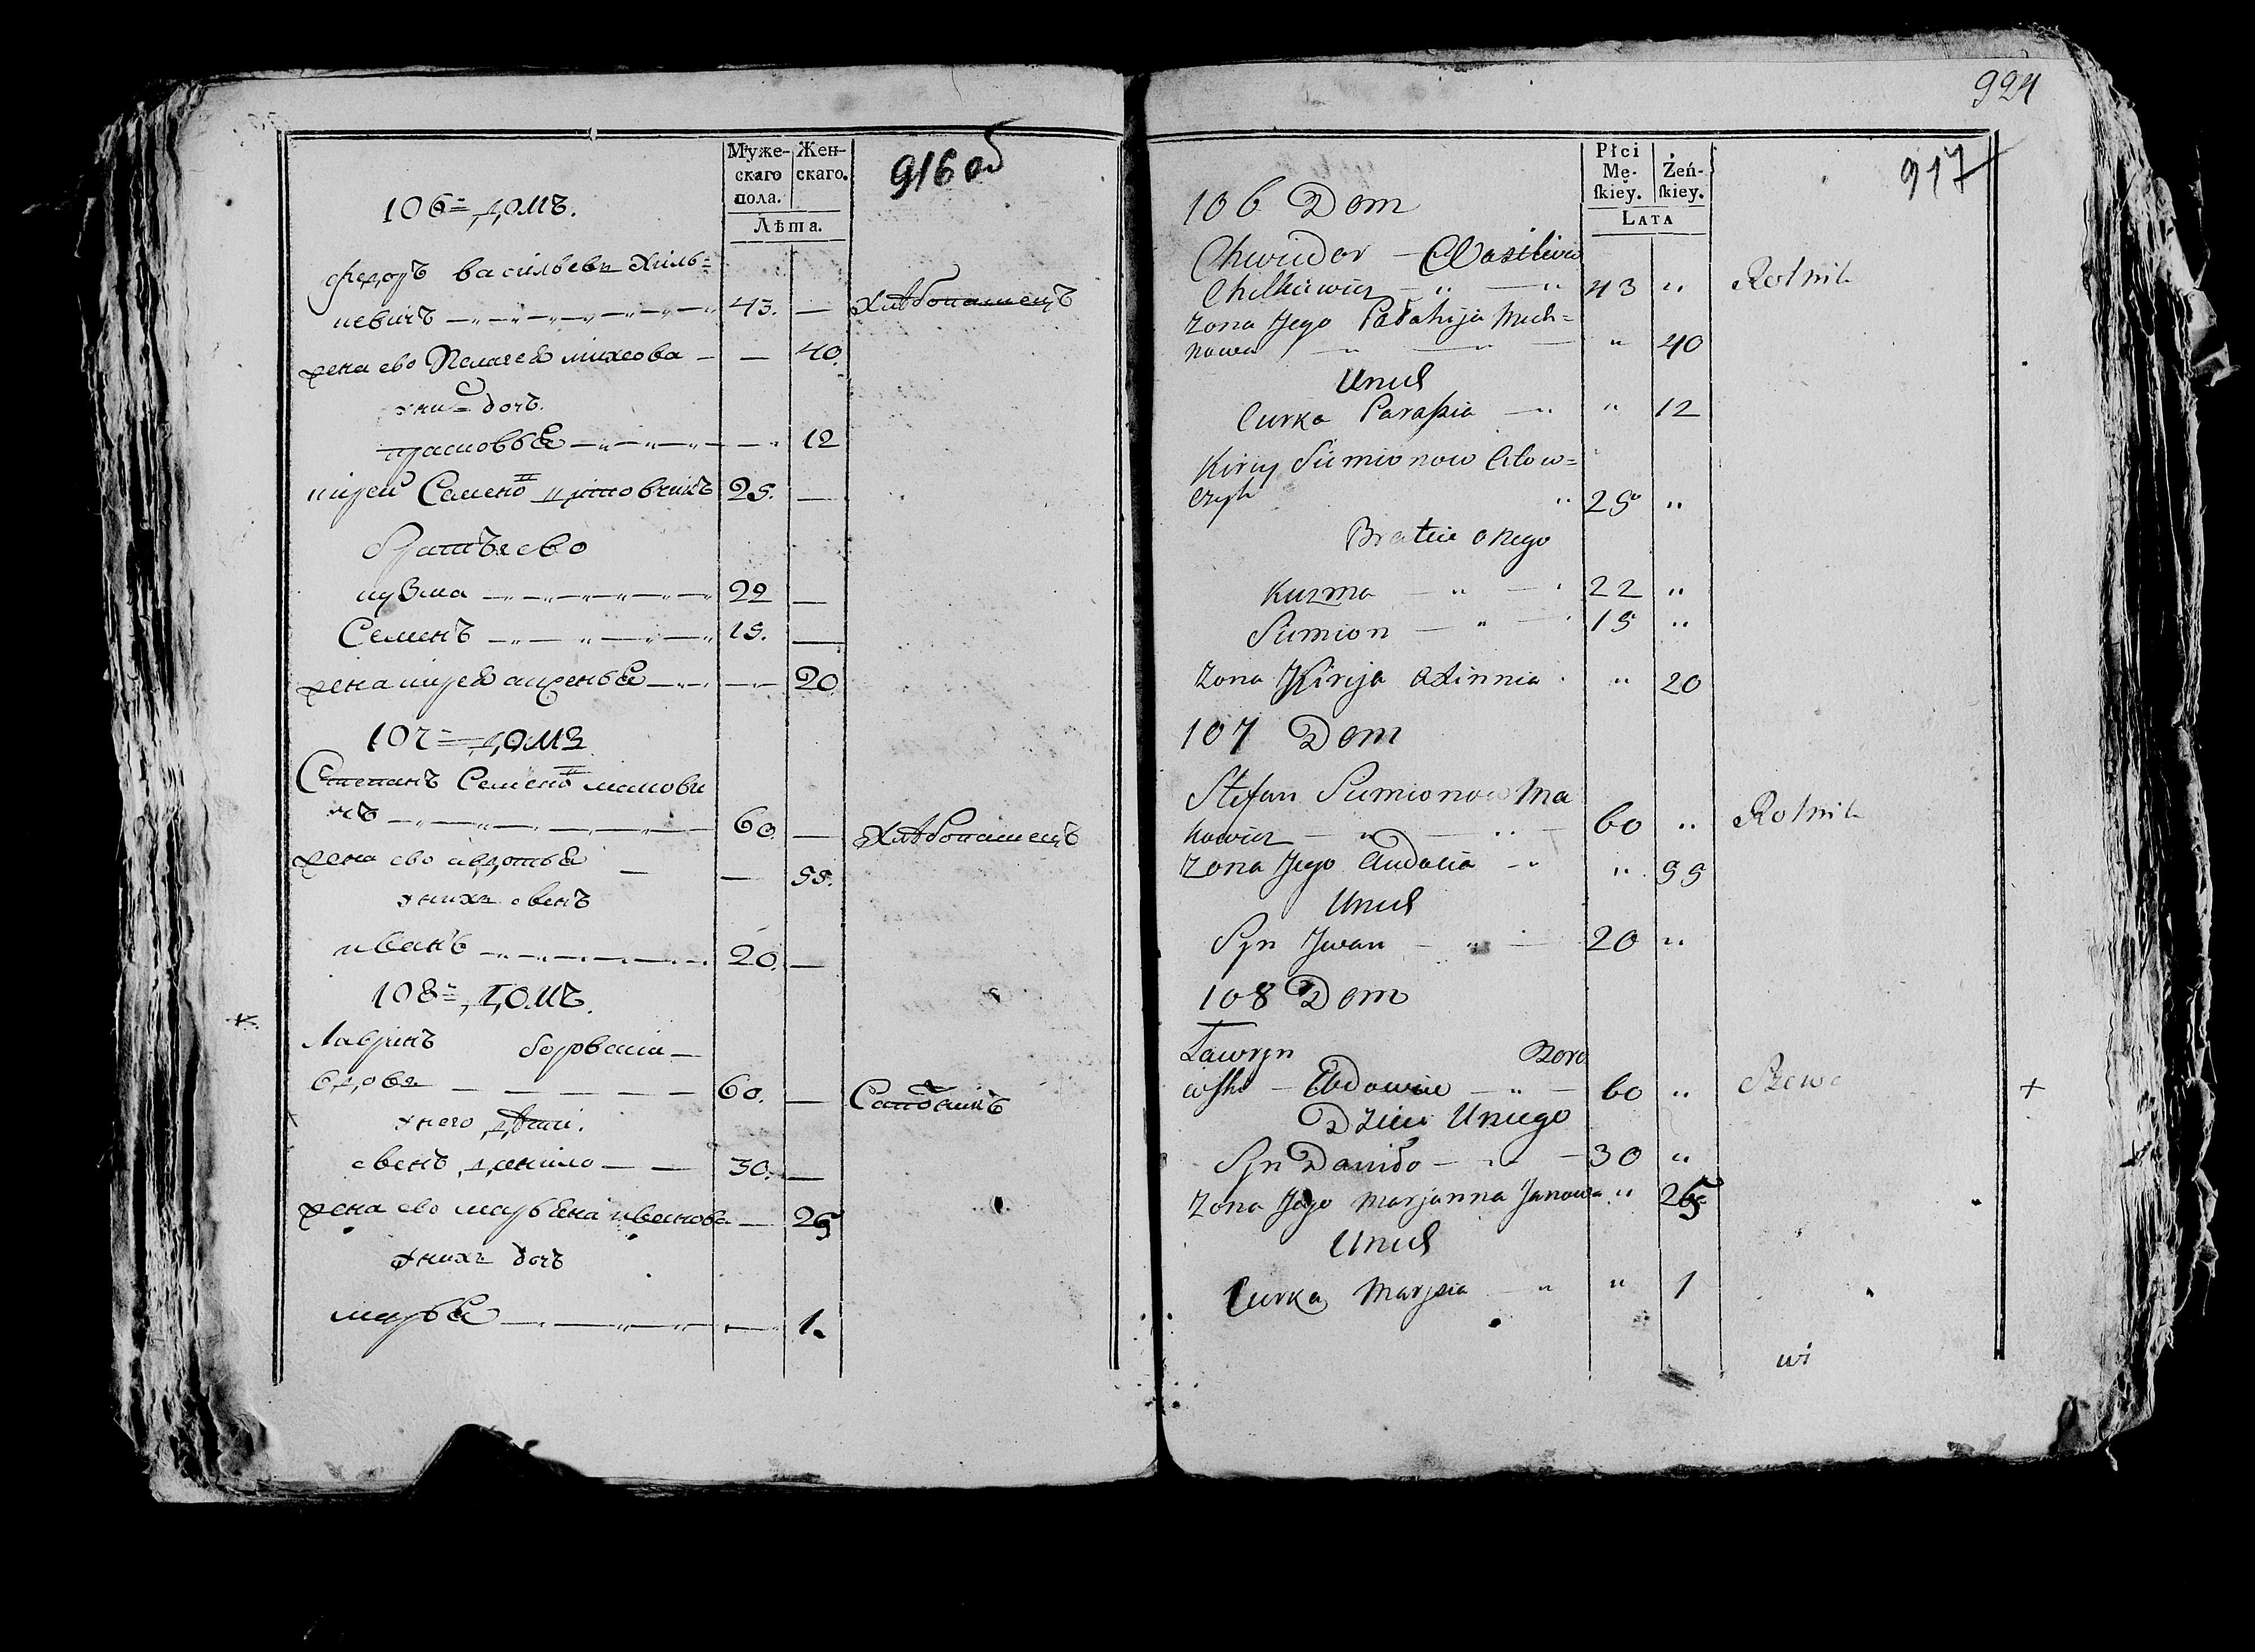 Муже-
скаго
пола.
Жен-
скаго.
Лѣта.
916 об
106 = домъ.
Федоръ васильевъ хиль=
кевичъ 43. — хлѣбопашецъ
жена ево Пелагея михеова — — 40.
у них = дочъ.
прасковья 12
кирей Семено 25. —
братья ево
кузма 22 —
Семенъ 15. —
жена кирея аксенья 20
107 = домъ
Степанъ Семено макови
чъ 60. — хлѣбопашецъ
жена ево авдотья — — 55.
у нихъ свенъ
иванъ 20. —
108 = домъ.
Лавринъ борвски —
вдовъ 60. — Сапожникъ
у него дѣти.
свенъ данило — — 30. —
жена ево марьяна иванова — 25
у нихъ дочъ
марья 1.
924
Płci
Mę-
ſkiey.
Żeń-
ſkiey.
Lata
917
106 Dom
Chwiedor — Wasilew
Chilkiewicz 43 " Rolnik
Zona Jego Pałahija Mich=
nowa " 40
U nich
Curka Paraſia " 12
Kirey Siemionow
25 "
Bratia onego
Kuzma 22 "
Siemion 15 "
Zona Kirija Axinnia " 20
107 Dom
Stefan Siemionow Ma
kowicz 60 " Rolnik
Zona Jego Audocia " 55
U nich
Syn Jwan 20 "
108 Dom
Ławryn Boro
wſki — Wdowiec 60 " Szewc
Dzieci U niego
Syn Daniło 30 "
Zona Jego Marjanna Janowa " 25
U nich
Curka Marysia " 1
wi